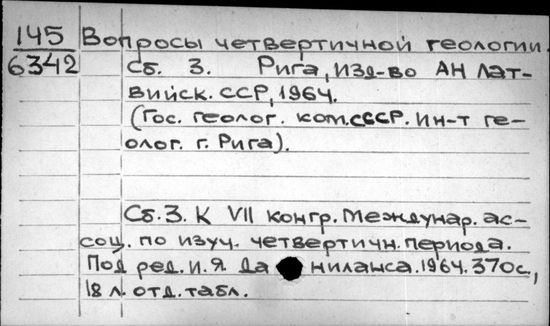 145 Вопросы четвертичной геологии.
6342 Сб. 3. Рига, Изд-во АН Лат-
вийск. ССР, 1964.
(Гос. геолог. ком. СССР. Ин-т ге-
олог. г. Рига).
Сб. 3. К VII конгр. Междунар. ас-
соц. по изуч. четвертичн. периода.
Под ред. И. Я. Да ниланса. 1964. 370с.,
18 л. отд. табл.